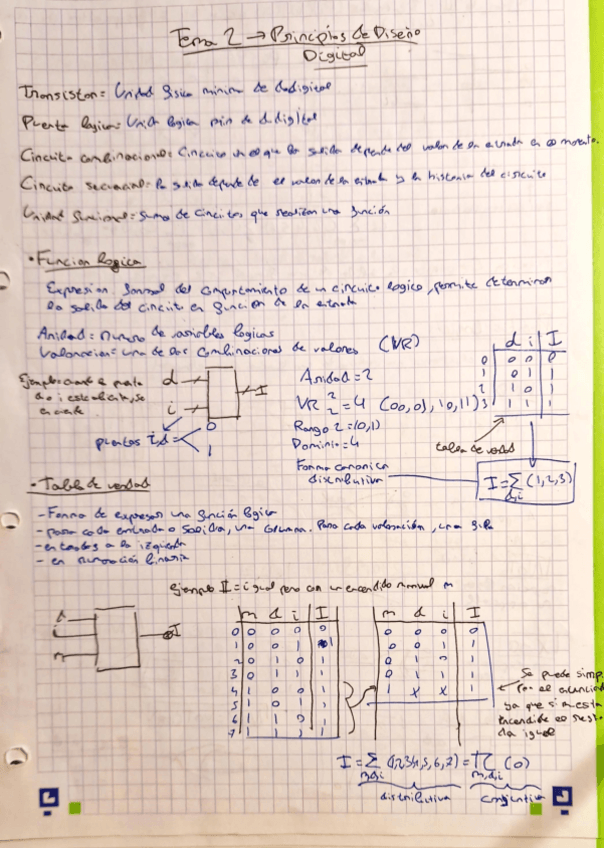 Tema 2 → Principios de Diseño
Digital
Transistor = Unidad física mínima de d.digital
Puerta lógica = Unid. lógica min de d.digital
Circuito combinacional = Circuito en el que la salida depende del valor de la entrada en ese momento.
Circuito secuencial = la salida depende de el valor de la entrada y la historia del circuito
Unidad funcional = Suma de circuitos que realizan una función
• Funcion logica
Expresion formal del comportamiento de un circuito logico, permite determinar
la salida del circuito en función de la entrada
Aridad = Numero de variables logicas
Valoracion = una de las combinaciones de valores (VR)
Ejemplo
d
i
I
puertas i,d = 0
1
Aridad = 2
VR 2² = 4 (00, 01, 10, 11)
Rango 2 = (0,1)
Dominio = 4
Forma canonica
distributiva
d i I
0 0 0 0
1 0 1 1
2 1 0 1
3 1 1 1
tabla de verdad
I = Σ (1,2,3)
d,i
• Tabla de verdad
- Forma de expresar una función lógica
- para cada entrada o salida, una columna. Para cada valoración, una fila
- entradas a la izquierda
- en numeración binaria
Ejemplo II = igual pero con un encendido manual m
I
m d i I
0 0 0 0 0
1 0 0 1 1
2 0 1 0 1
3 0 1 1 1
4 1 0 0 1
5 1 0 1 1
6 1 1 0 1
7 1 1 1 1
m d i I
0 0 0 0
0 0 1 1
0 1 0 1
0 1 1 1
1 x x 1
Se puede simp
por el enunciad
ya que si m esta
encendido el rest
da igual
I = Σ (1,2,3,4,5,6,7) = π (0)
m,d,i m,d,i
distributiva conjuntiva